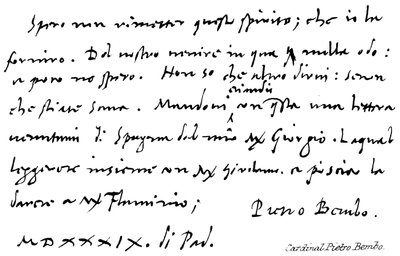 Spero non rimetter questo spirito; che io la
forniro. Del vostro venire in qua nulla odo:
e poco no spero. Non so che altro dirvi: senon
che stiate sana. Mandovi eziandio con qsta una lettera
venutami di Spagna dal mio M. Giorgio. La qual
leggerete insieme con M. Girolamo. e poscia la
darete a M. Flaminio;
Pietro Bembo.
MDXXXIX. di Pad.
Cardinal Pietro Bembo.